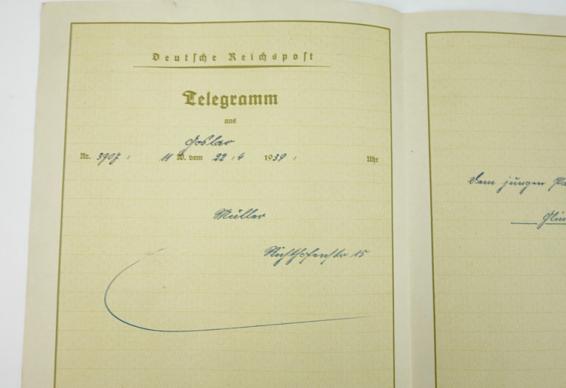 Deutsche Reichspost
Telegramm
aus
Goslar
Nr. 3907 / 11 W. vom 22 / 4 1939 / Uhr
Müller
Richthofenstr 15
Dem jungen